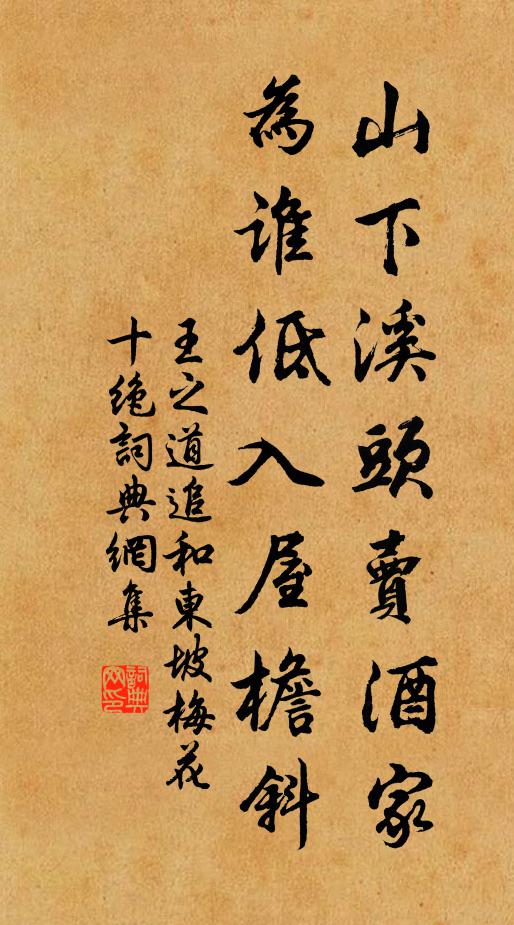 山下溪頭賣酒家
為誰低入屋檐斜
王之道追和東坡梅花
十絶詞典網集
詞典
网印